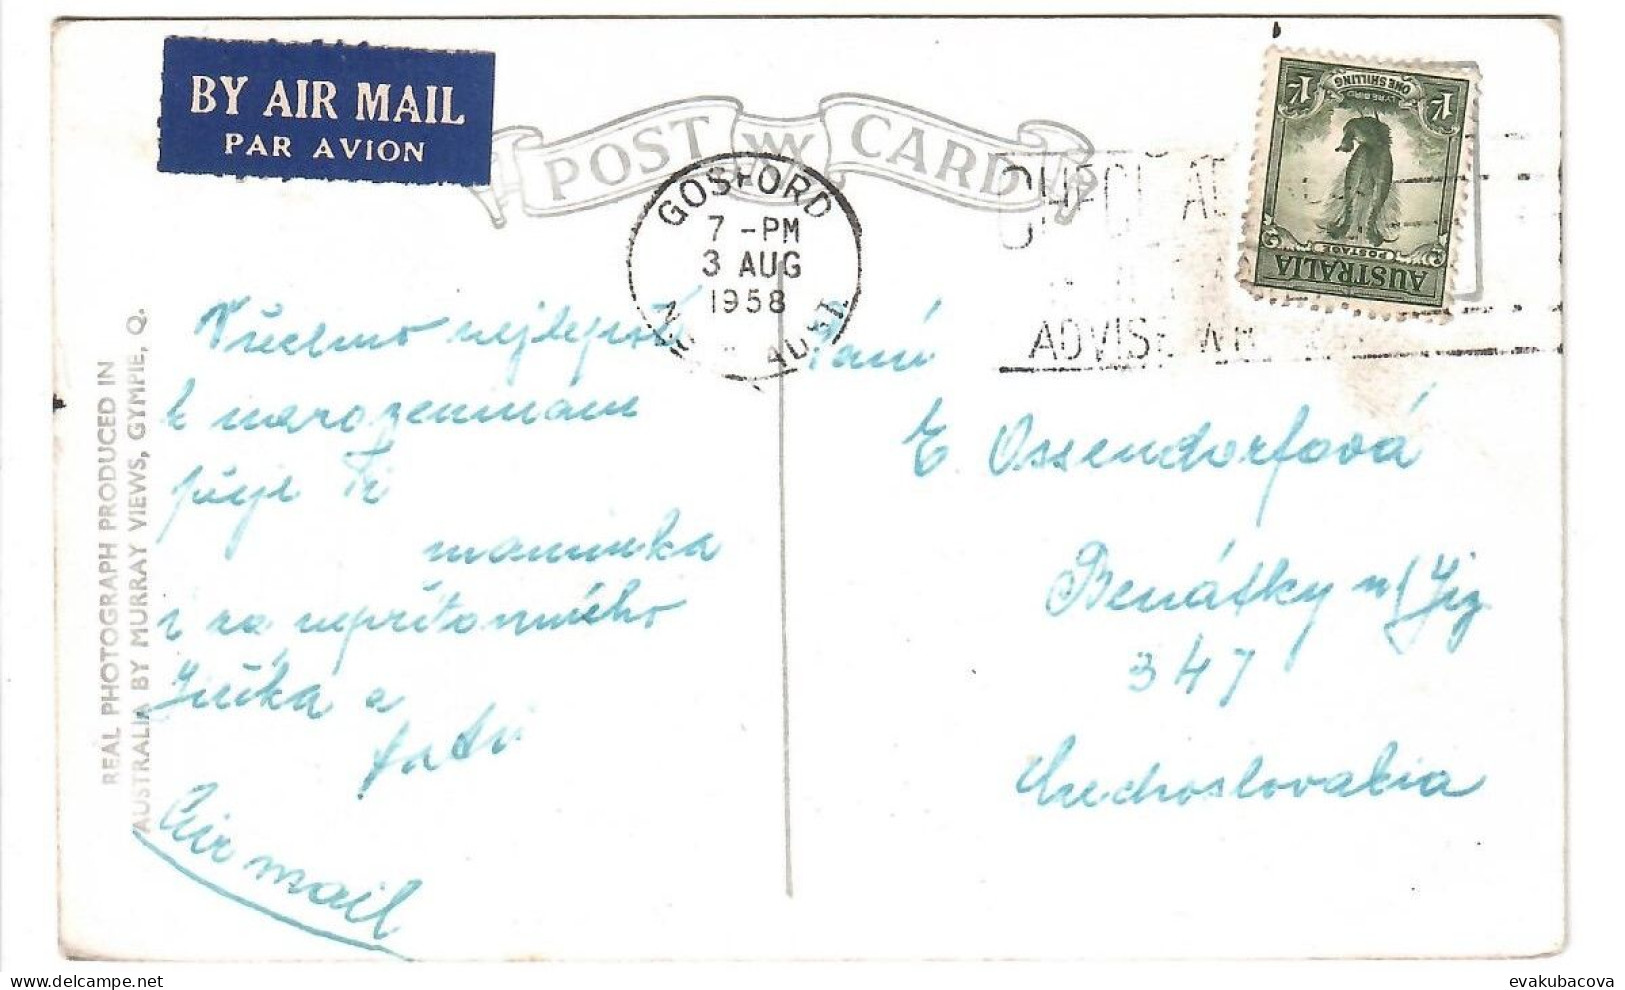 BY AIR MAIL
PAR AVION
POST CARD
GOSFORD
7 - PM
3 AUG
1958
ADVISE
ONE SHILLING
LYREBIRD
1/-
1/-
POSTAGE
AUSTRALIA
REAL PHOTOGRAPH PRODUCED IN
AUSTRALIA BY MURRAY VIEWS, GYMPIE, Q.
Všechno nejlepší
k narozeninám
přeje Ti
maminka
i za nepřítomného
Jiříka a
tatí
Air mail
Paní
E. Ossendorfová
Benátky n/Jiz
347
Czechoslovakia
evakubacova